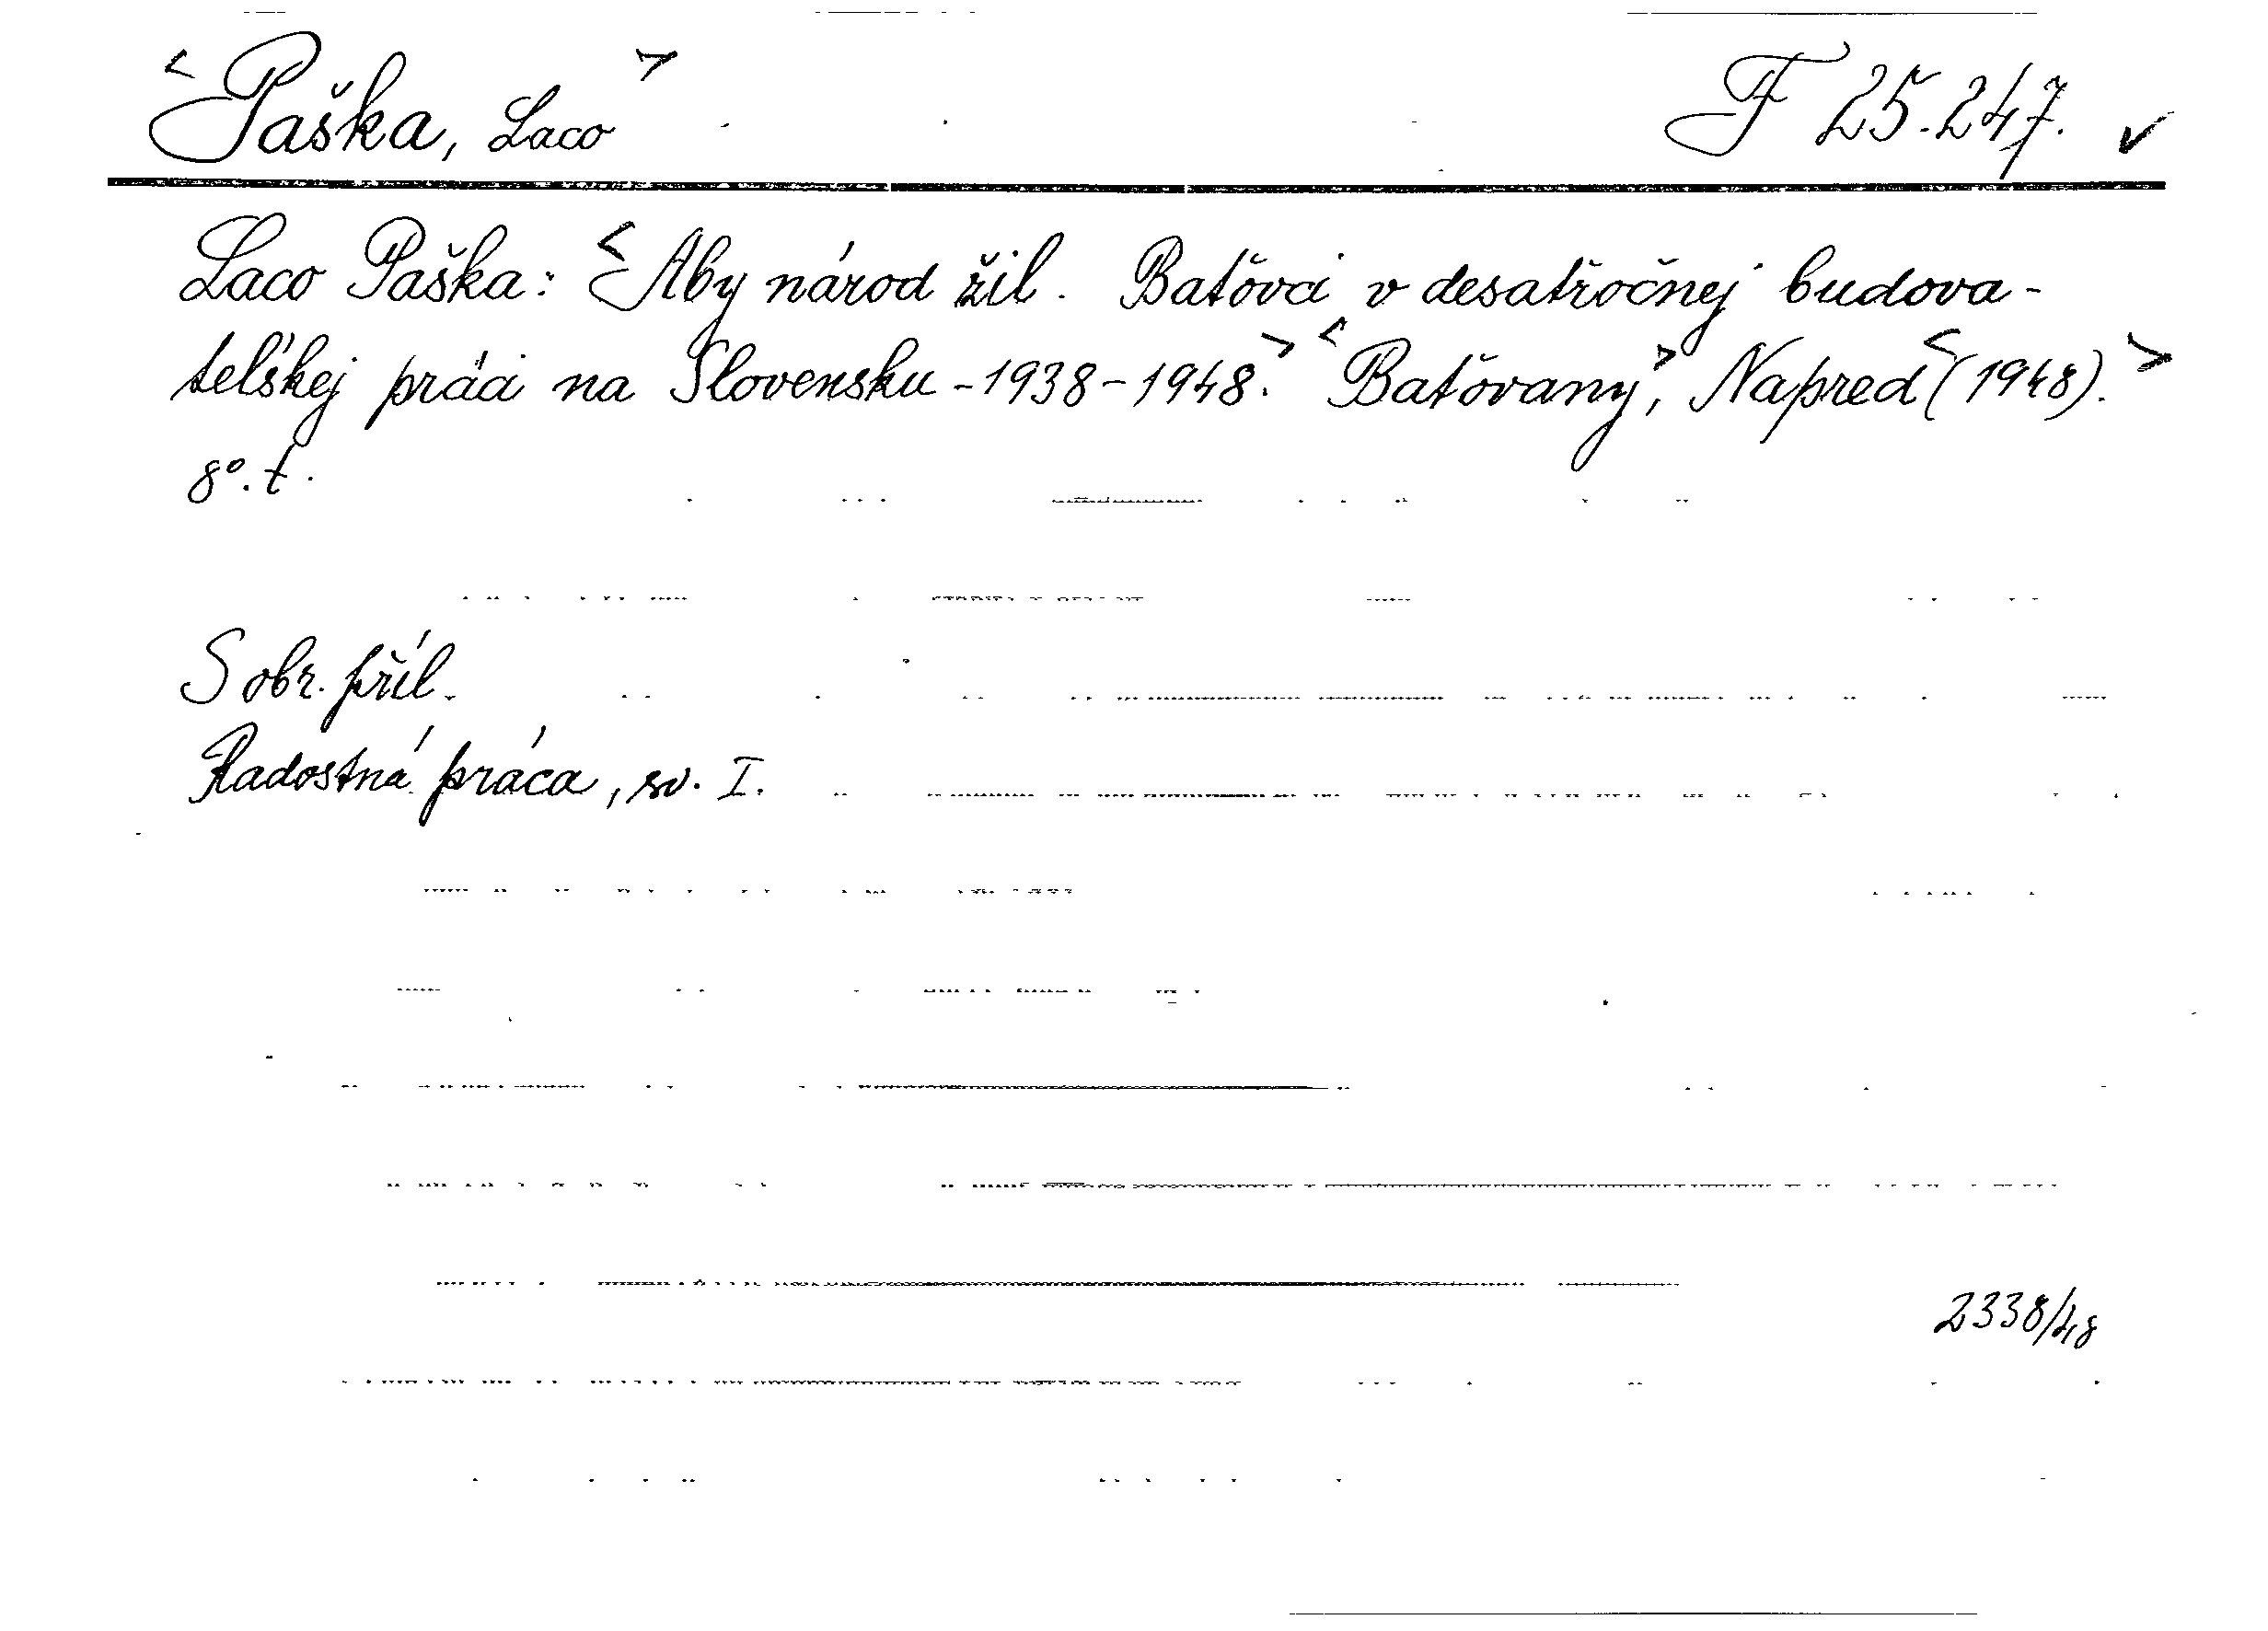 <Paška, Laco> F 25.247. ✓
Laco Paška: <Aby národ žil. Baťovci v desaťročnej budova-
teľskej práci na Slovensku - 1938 - 1948.> <Baťovany>, Napred <(1948).>
8°. t.
S obr. příl.
Radostná práca, sv. I.
2338/48